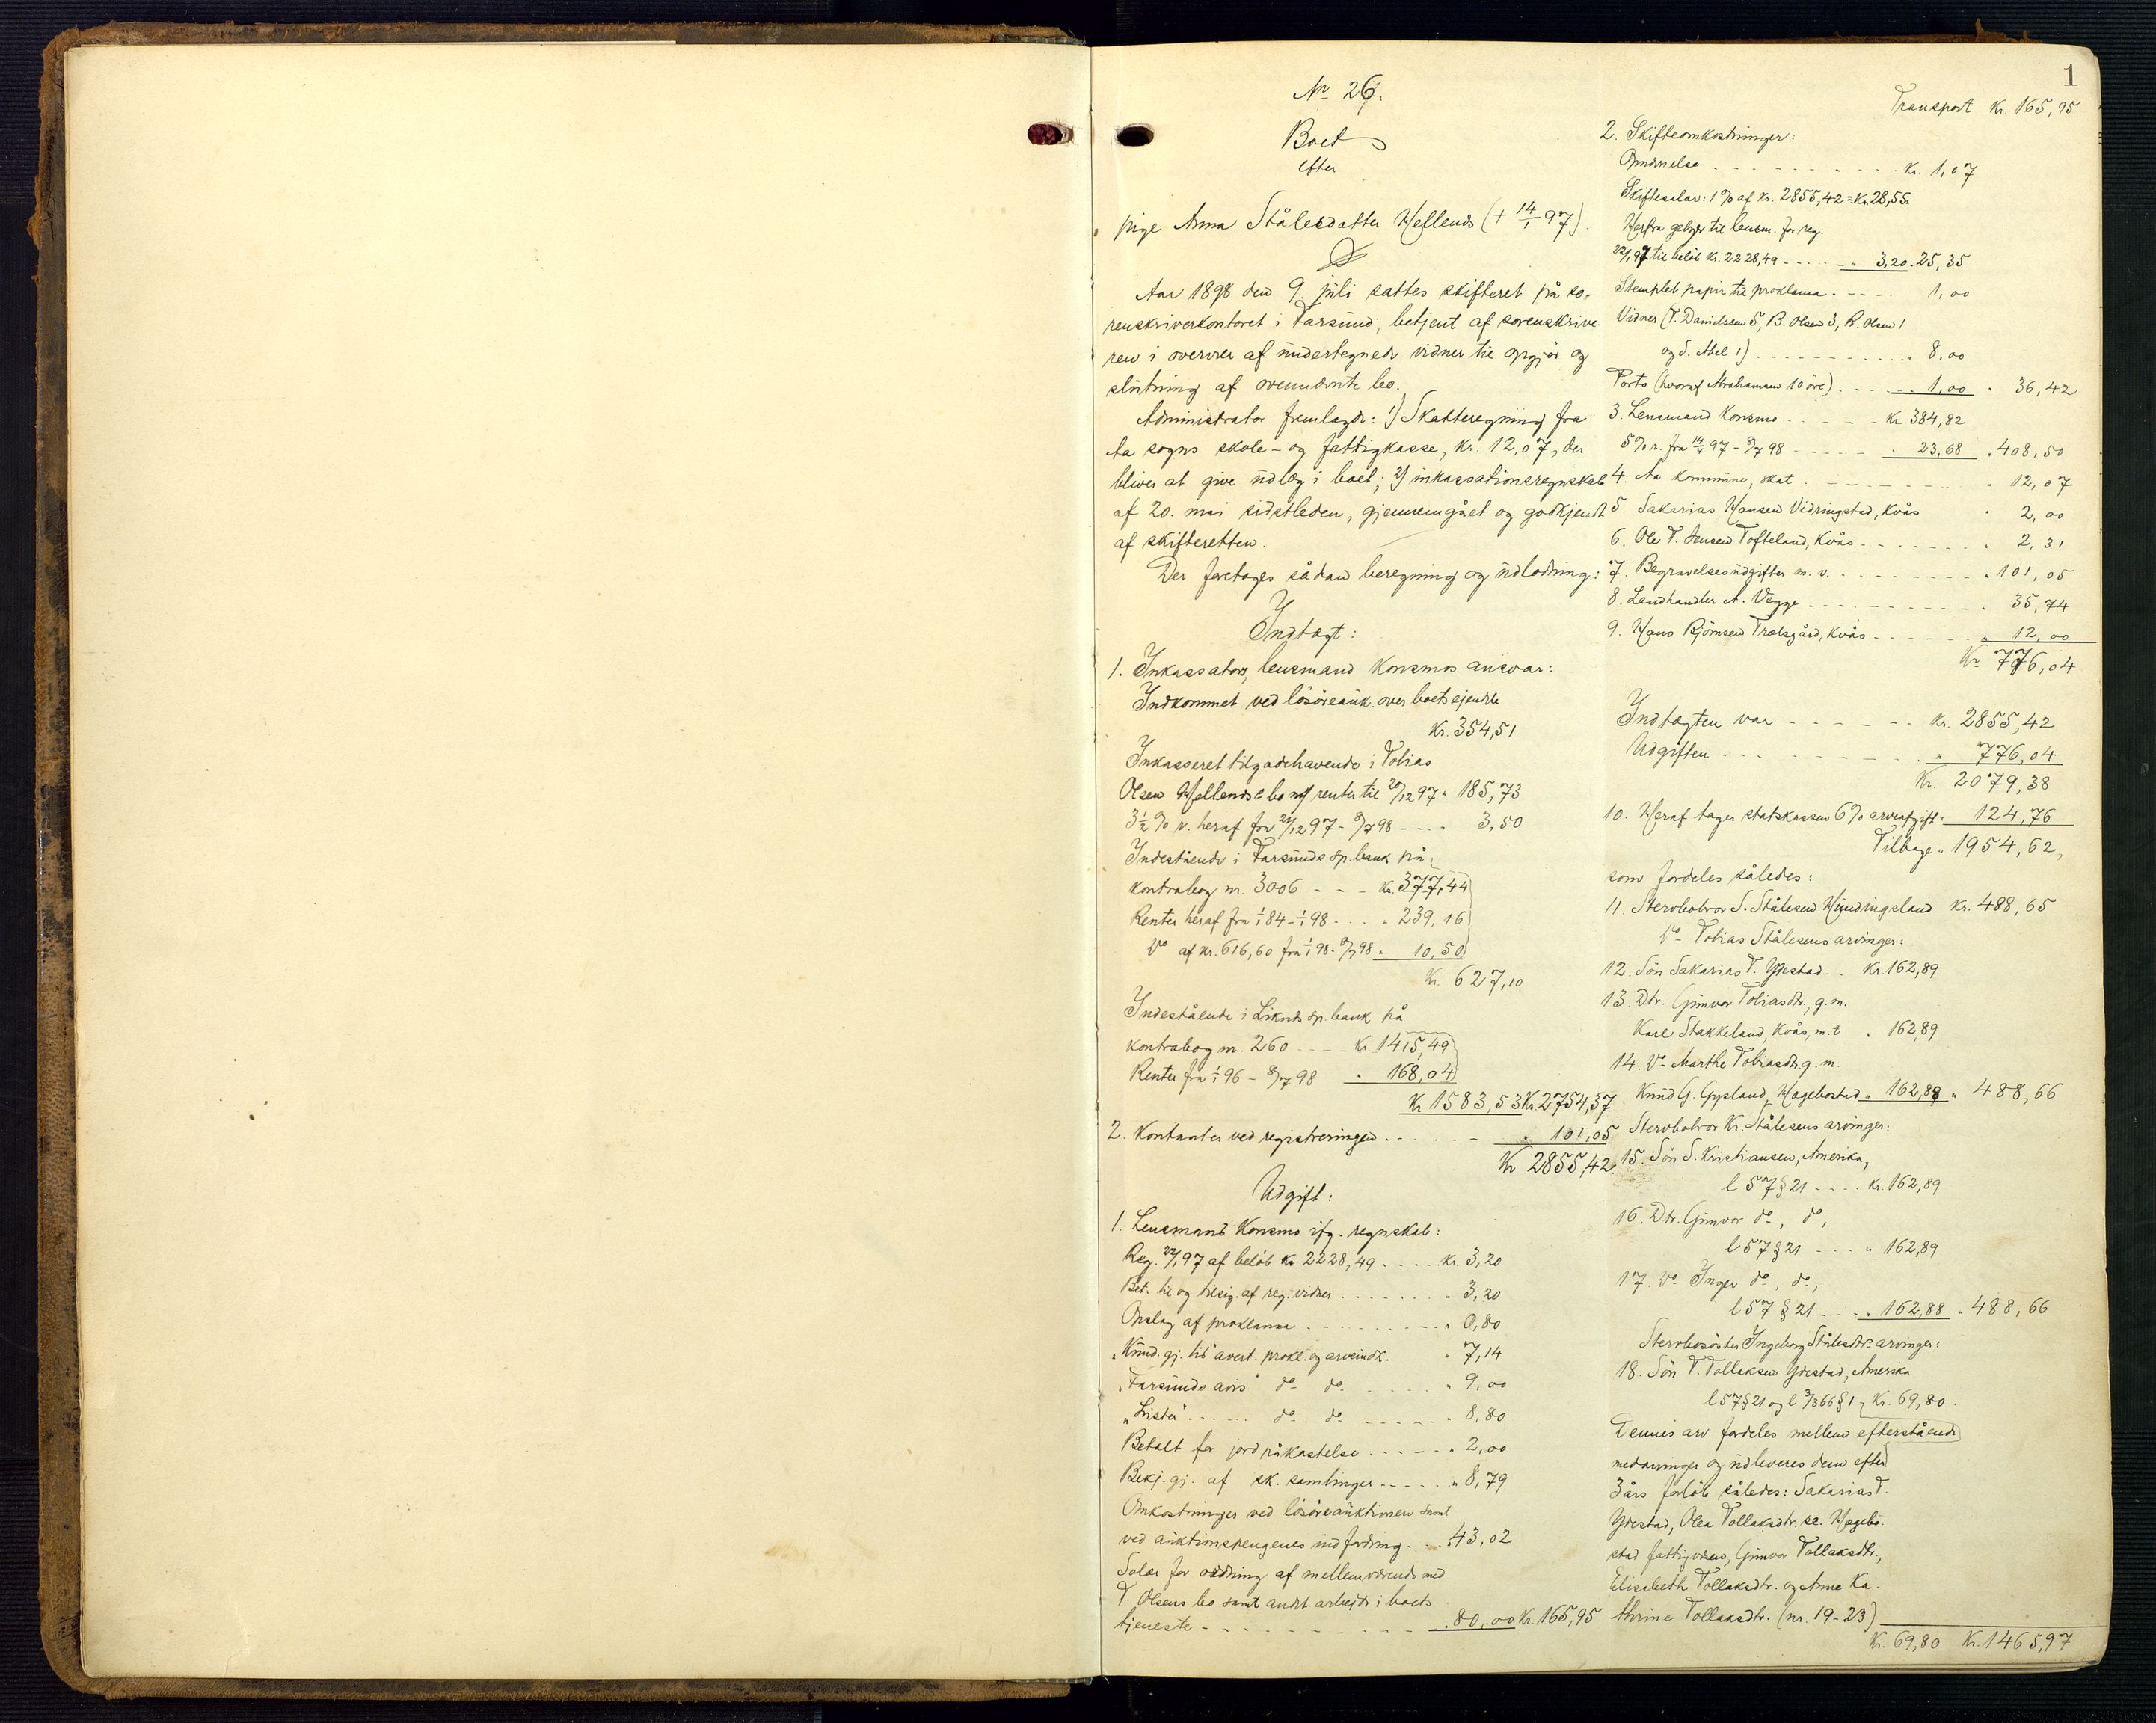 1
Nr 26.
Boet
efter
pige Anna Stålesdatter Hellends († 14/1 97).
Aar 1898 den 9. juli sattes skifteret på so-
renskriverkontoret i Farsund, betjent af sorenskrive-
ren i overvær af undertegnede vidner til opgjör og
slutning af ovennævnte bo.
Administrator fremlagde: 1) Skatteregning fra
Aa sogns skole- og fattigkasse, kr. 12,07, der
bliver at give udlæg i boet; 2) inkassationsregnskab
af 20. mai sidstleden, gjennemgået og godkjendt
af skifteretten.
Der foretages sådan beregning og udlodning:
Indtægt:
1. Inkassators, lensmand Konsmos ansvar:
Indkommet ved lösöreauk. over boets eiendele
kr. 354,51
Inkasseret tilgodehavende i Tobias
Olsen Hellends bo m/ renter til 20/12 97 " 185,73
3½ % r. heraf fra 20/12 97 - 9/7 98 - - - " 3,50
Indestående i Farsunds sp.bank på
kontrabog nr. 3006 - - - kr. 377,44
Renter heraf fra 1/1 84 - 1/1 98 - - . " 239,16
Do af kr. 616,60 fra 1/1 98 - 9/7 98 " 10,50
Kr. 627,10
Indestående i Liknes sp.bank på
kontrabog nr. 260 - - - - kr. 1415,49
Renter fra 1/1 96 - 9/7 98 " 168,04
Kr 1583,53 Kr. 2754,37
2. Kontanter ved registreringen . - - - - - " 101,05
Kr 2855,42
Udgift:
1. Lensmand Konsmo ifg. regnskab:
Reg. 22/1 97 af beløb kr 2228,49 . - - - kr. 3,20
Bet. til og tilsig. af reg. vidner . - - - - - " 3,20
Opslag af proklama . - - - - - - - - " 0,80
"Kund. gj. tid" avert. prokl. og arveindk. " 7,14
"Farsunds avis" do do . - - - - " 9,00
"Lister" - - - - do do - - - - - " 8,80
Betalt for jordpåkastelse - - - - - " 2,00
Bekj. gj. af sk. samlinger - - - - - " 8,79
Omkostninger ved lösöreauktionen samt
ved auktionspengenes indfordring - - - " 43,02
Salær for ordning af mellemværende med
T. Olsens bo samt andet arbejde i boets
tjeneste - - - - - - - - - - - " 80,00 Kr. 165,95
Transport Kr. 165,95
2. Skifteomkostninger:
- - - - - - - - - - Kr. 1,07
Skiftesalær: 1 % af kr. 2855,42 = Kr. 28,55
Herfra gebyr til lensm. for reg.
22/1 97 til beløb kr. 2228,49 - - - - - " 3,20 " 25,35
Stemplet papir til proklama . - - - . 1,00
Vidner (T. Danielssen 5, B. Olsen 3, R. Olsen 1
og S. Abel 1) - - - - - - - - - - - " 8,00
Porto (hvoraf Abrahamsen 10 öre) . - - - - " 1,00 " 36,42
3. Lensmand Konsmo - - - - - kr 384,82
5 % r. fra 14/4 97 - 9/7 98 - - - - - " 23,68 " 408,50
4. Aa kommune, skat . - - - - - - - - - " 12,07
5. Sakarias Hansen Vidringstad, Kvås " 2,00
6. Ole T. Jensen Tofteland, Kvås - - - - - - - " 2,31
7. Begravelsesudgifter m. v. - - - - - - - - " 101,05
8. Landhandler A. Vegge - - - - - - - - - " 35,74
9. Hans Björnsen Trælsgård, Kvås - - - - - - " 12,00
Kr 776,04
Indtægten var - - - - - - kr. 2855,42
Udgiften - - - - - - - - - - " 776,04
Kr. 2079,38
10. Heraf tager statskassen 6 % arveafgift " 124,76
Tilbage " 1954,62,
som fordeles således:
11. Stervbobror S. Stålesen Hundingsland kr. 488,65
Do Tobias Stålesens arvinger:
12. Sön Sakarias T. Ydestad - - Kr. 162,89
13. Dtr. Gunvor Tobiasdtr., g. m.
Karl Stakkeland, Kvås, m. t. " 162,89
14. Do Marthe Tobiasdtr g. m.
Knud G. Gysland, Hægebostad " 162,88 " 488,66
Stervbobror Kr. Stålesens arvinger:
15. Sön S. Kristiansen, Amerika,
l 57 § 21 - - - - kr. 162,89
16. Dtr. Gunvor do, do,
l 57 § 21 - - - - " 162,89
17. Do Inger do, do,
l 57 § 21 - - - - " 162,88 " 488,66
Stervbosöster Ingeborg Stålesdtrs arvinger:
18. Sön T. Tollaksen Ydestad, Amerika
l 57 § 21 og l 3/3 66 § 1, Kr. 69,80.
Dennes arv fordeles mellem efterstående
medarvinger og udleveres dem efter
3 års forløb således: Sakarias T.
Ydestad, Olea Tollaksdtr. sc. Hægebo-
stad fattigvæsen, Gunvor Tollaksdtr.,
Elisabeth Tollaksdtr. og Anne Ka-
thrine Tollaksdtr. (nr. 19-23)
Kr. 69,80 Kr. 1465,97